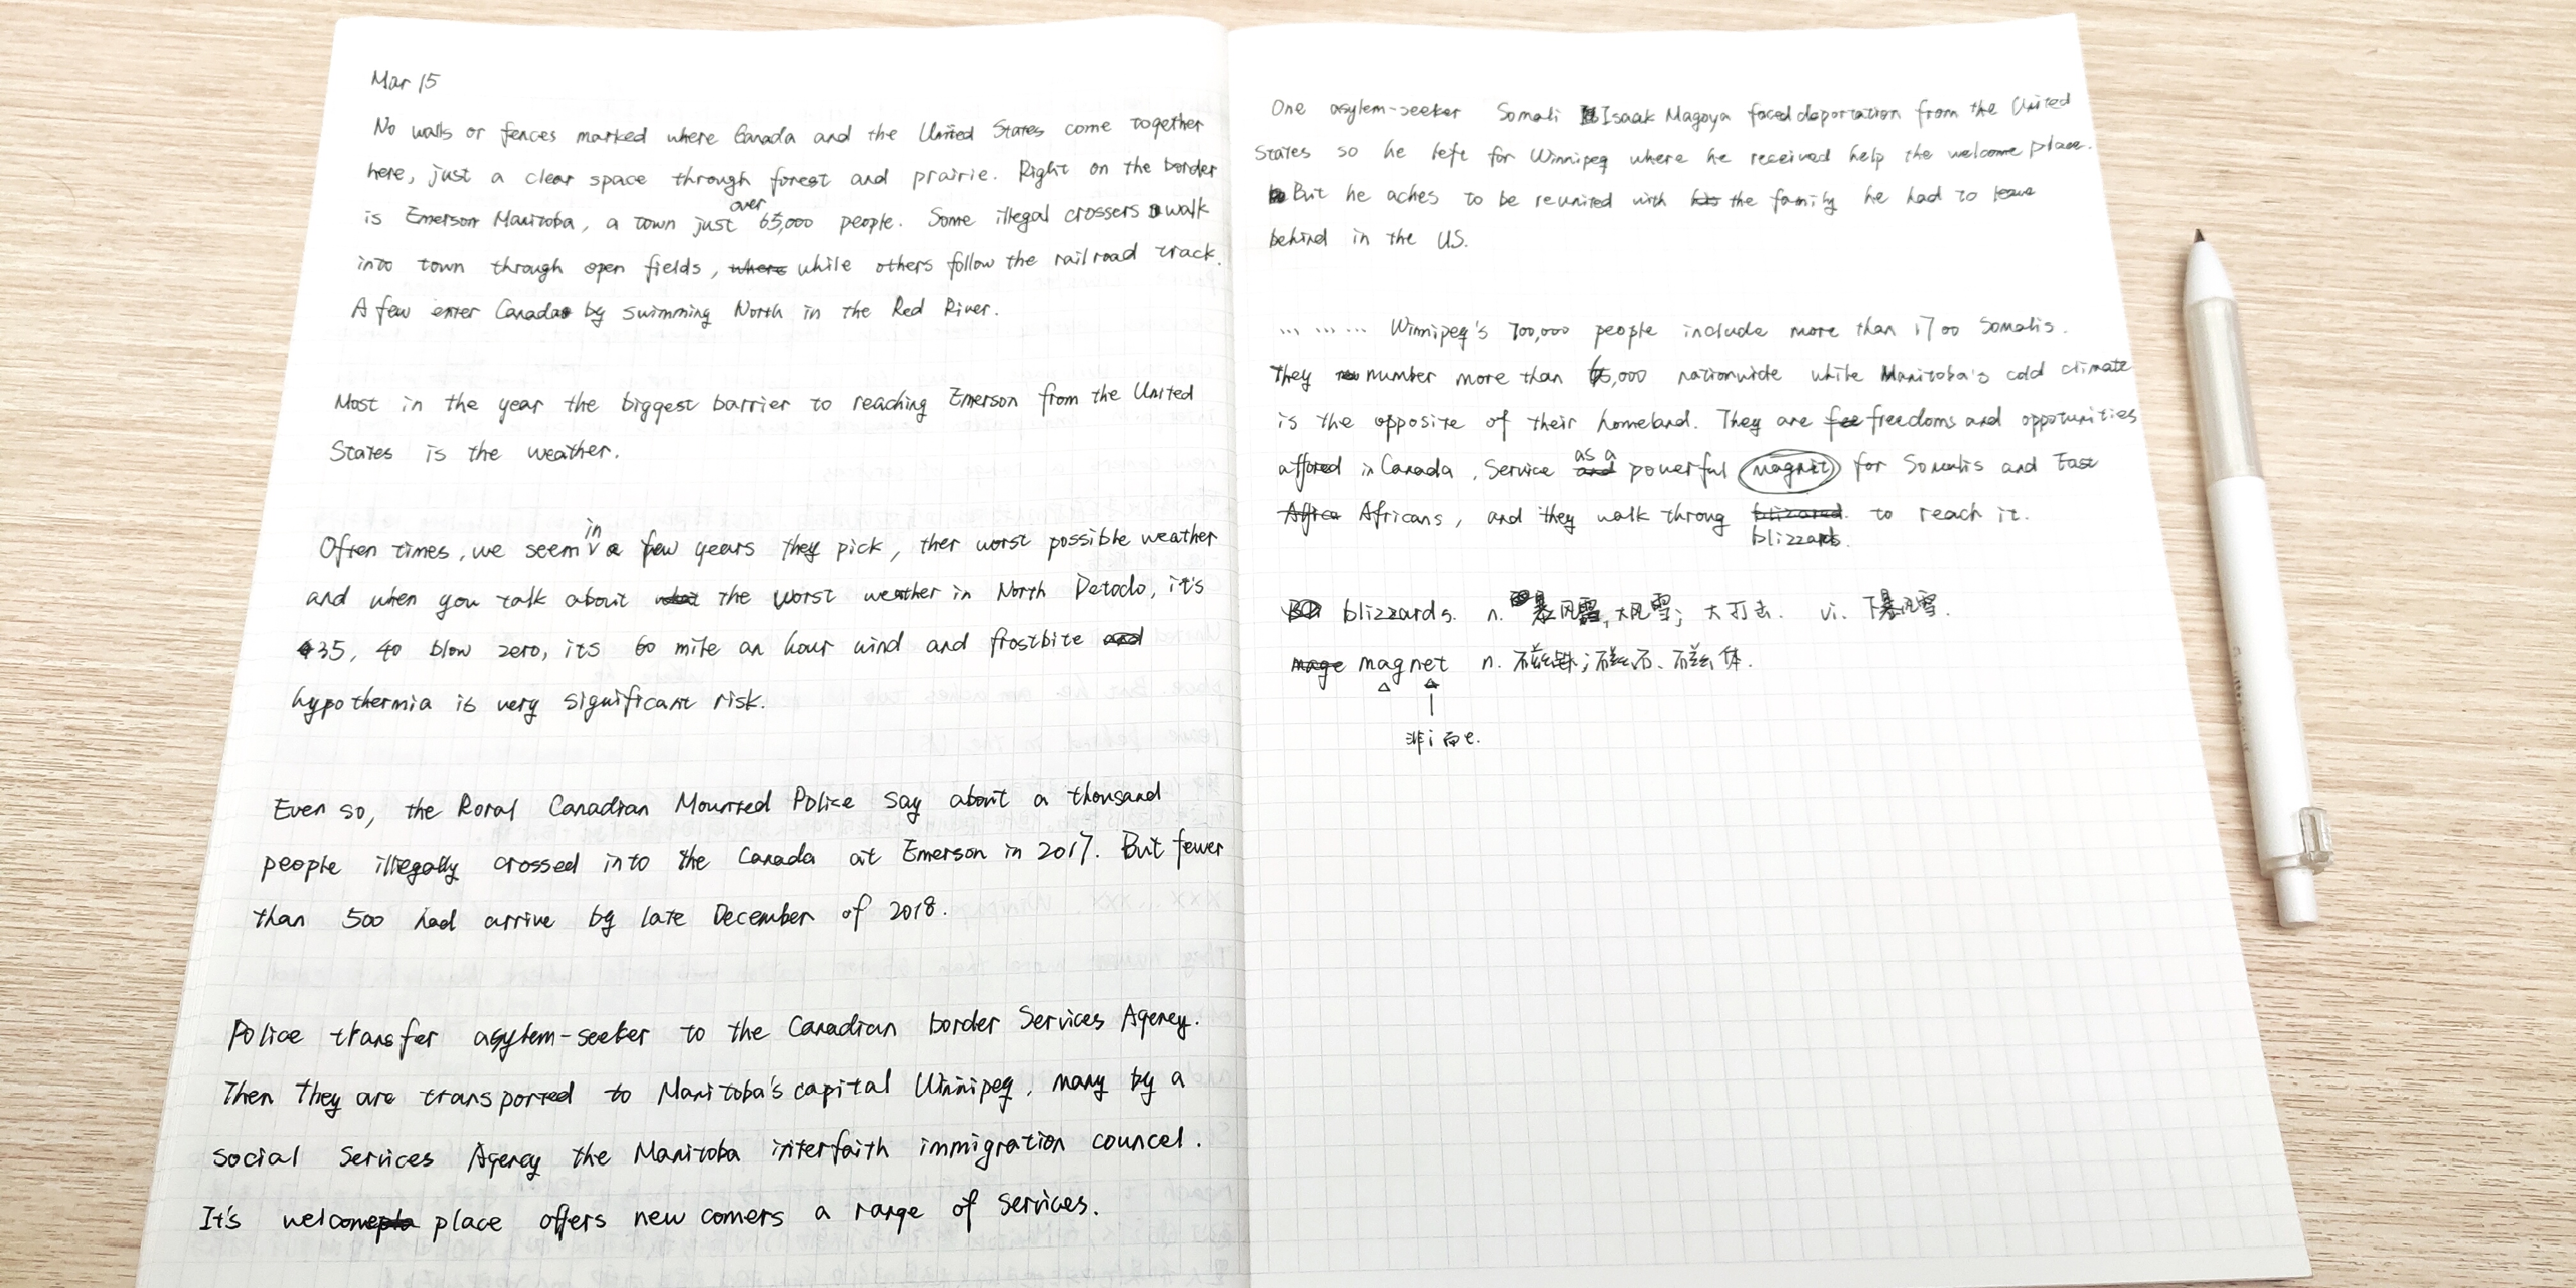 Mar 15
No walls or fences marked where Canada and the United States come together
here, just a clear space through forest and prairie. Right on the border
is Emerson Manitoba, a town just over 65,000 people. Some illegal crossers walk
into town through open fields, where while others follow the railroad track.
A few enter Canada by swimming North in the Red River.
Most in the year the biggest barrier to reaching Emerson from the United
States is the weather.
Often times, we seem in a few years they pick, ther worst possible weather
and when you talk about the worst weather in North Detoclo, it's
35, 40 blow zero, its 60 mile an hour wind and frostbite and
hypothermia is very significant risk.
Even so, the Roral Canadian Mounted Police say about a thousand
people illegally crossed into the Canada at Emerson in 2017. But fewer
than 500 had arrive by late December of 2018.
Police transfer asylem-seeker to the Canadian border Services Agency.
Then They are transported to Manitoba's capital Winnipeg, many by a
social Services Agency the Manitoba interfaith immigration councel.
It's welcome place offers new comers a range of services.
One asylem-seeker Somali Isaak Magoya faced deportation from the United
States so he left for Winnipeg where he received help the welcome place.
But he aches to be reunited with his the family he had to leave
behind in the US.
... ... ... Winnipeg's 700,000 people include more than 1700 Somalis.
They number more than 65,000 nationwide while Manitoba's cold climate
is the opposite of their homeland. They are fee freedoms and oppotunities
affored in Canada, Service and as a powerful magnit for Somalis and East
Africa Africans, and they walk throug blizzared to reach it.
blizzards.
blizzards. n. 暴风雪,大风雪; 大打击. vi. 下暴风雪.
mage magnet n. 磁铁;磁石、磁体.
非i而e.